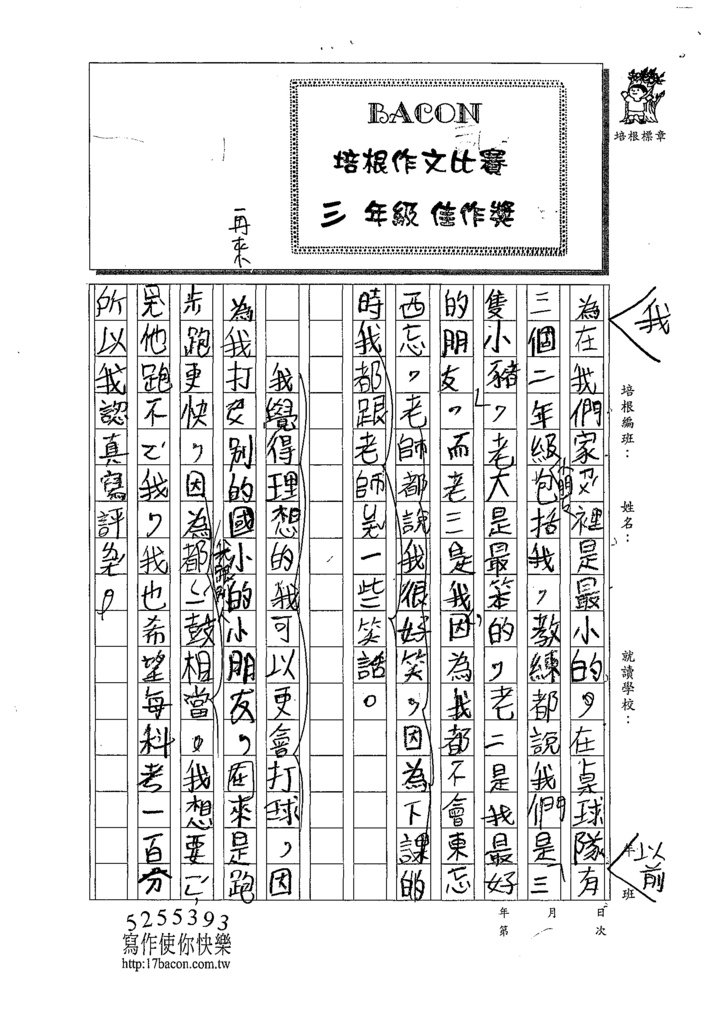 BACON
培根作文比賽
三 年級 佳作獎
培根標章
再來
我
以前
培根編班：
姓名：
就讀學校：
年 班
為在我們家裡是最小的，在桌球隊有
三個二年級包括我，教練都說我們是三
隻小豬，老大是最笨的，老二是我最好
的朋友，而老三是我因為我都不會東忘
西忘，老師都說我很好笑，因為下課的
時我都跟老師說一些笑話。
我覺得理想的我可以更會打球，因
為我打安別的國小的小朋友，在來是跑
步跑更快，因為都一鼓相當。我想要
他跑不我，我也希望每科考一百分
所以我認真寫評
我跟別人
年 月 日
第 次
5255393
寫作使你快樂
http:17bacon.com.tw